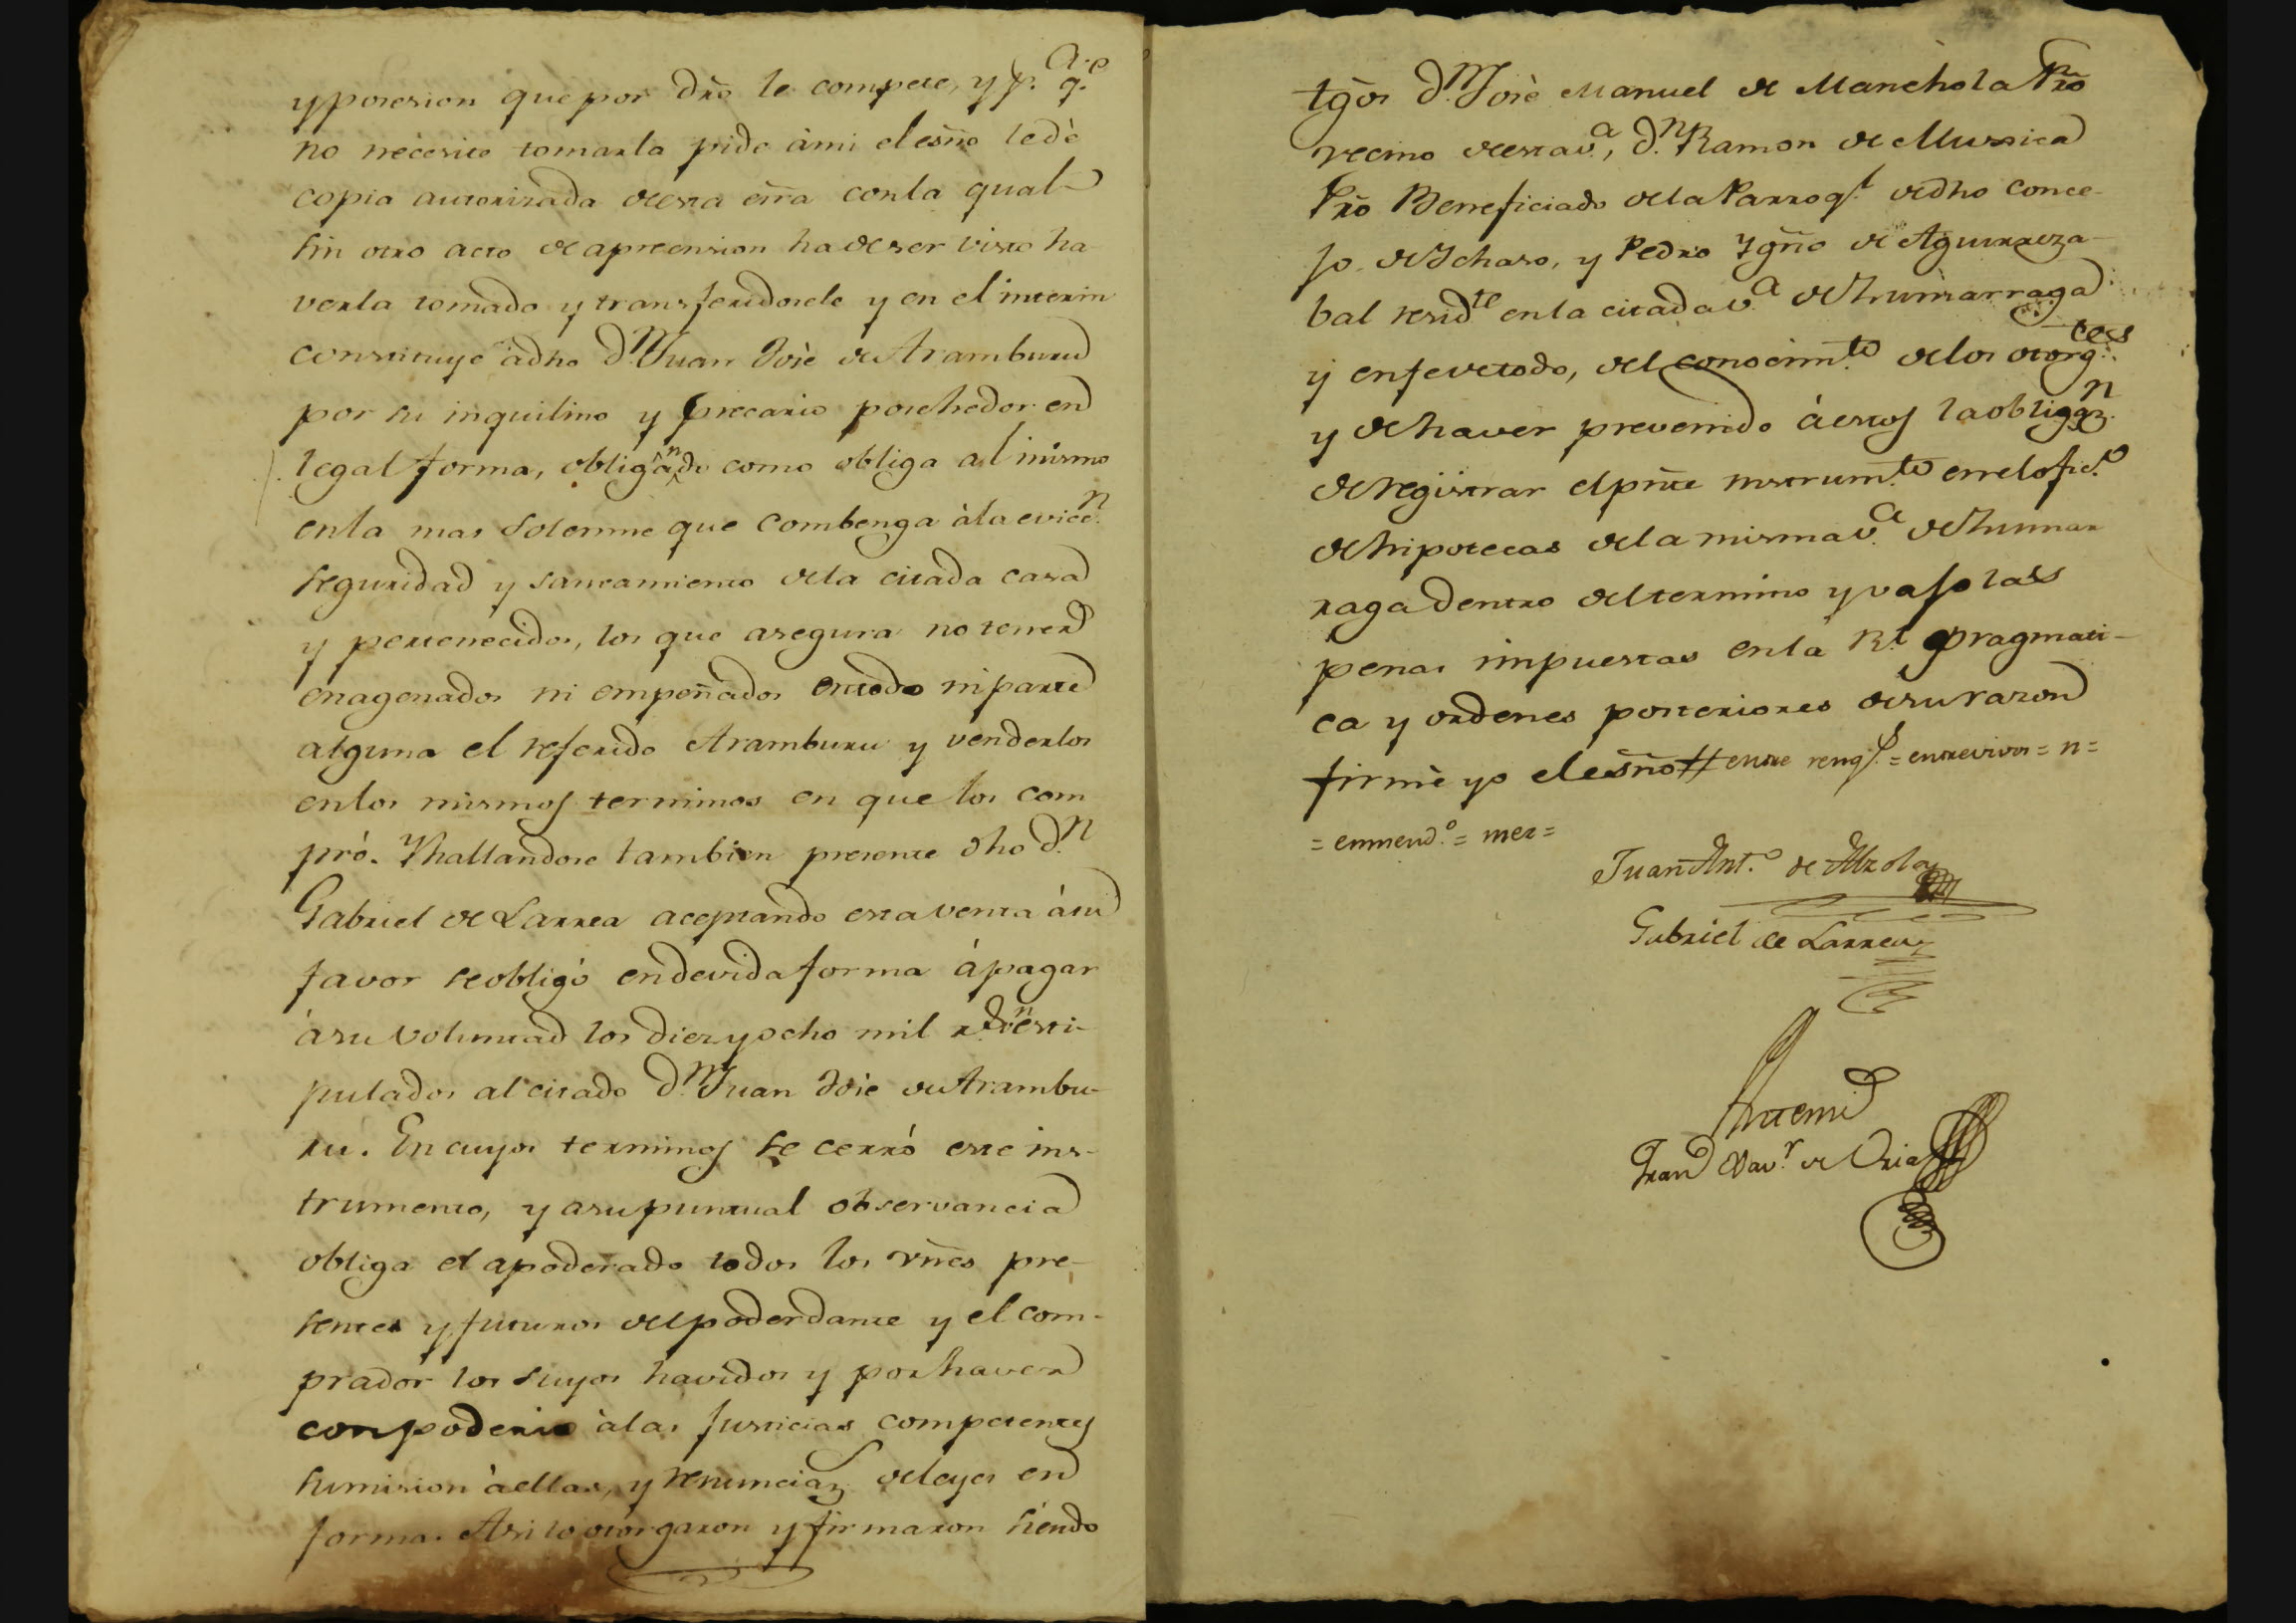 y posesion que por dro le compete, y p.ª q.e
no necesite tomarla pide à mi el esño le dè
copia autorizada de esta esra con la qual
sin otro acto de apreension ha de ser visto ha
verla tomado y transferidosele y en el interin
constituye à dho D.n Juan Josè de Aramburu
por su inquilino y precario posehedor en
legal forma, obligando como obliga al mismo
en la mas solemne que combenga à la evicc.n
seguridad y saneamiento de la citada casa
y pertenecidos, los que asegura no tener
enagenados ni empeñados en todo ni parte
alguna el referido Aramburu y venderlos
en los mismos terminos en que los com
pró. Y hallandose tambien presente dho d.n
Gabriel de Larrea aceptando esta venta á su
favor se obligó en devida forma á pagar
á su voluntad los diez y ocho mil r.s v.n esti-
pulados al citado D.n Juan Josè de Arambu-
ru. En cuyos terminos se cerró este ins-
trumento, y a su puntual observancia
obliga el apoderado todos los vñes pre-
sentes y futuros del poderdante y el com-
prador los suyos havidos y por haver
con poderio à las Justicias competentes
sumision à ellas, y renunciaz.n de leyes en
forma. Asi lo otorgaron y firmaron siendo
tgõs D.n Josè Manuel de Manchola Pro
vecino de esta v.ª, D.n Ramon de Mursica
Pro Beneficiado de la Parroq.l de dho Conce-
jo de Ichaso, y Pedro Ygño de Aguirreza-
bal resid.te en la citada v.ª de Zumarraga
y en fe de todo, del conocim.to de los otorg.tes
y de haver prevenido á estos la obligaz.n
de registrar el pñte instrum.to en el ofic.o
de hipotecas de la misma v.ª de Zumar
raga dentro del termino y vajo las
penas impuestas en la R.l Pragmati-
ca y ordenes posteriores de su razon
firmè yo el esño # entre reng.s = entrevivos = n =
= enmend.o = mer =
Juan Ant.o de Alzola
Gabriel de Larrea
Ante mi
Fran.co Xav.r de Oria